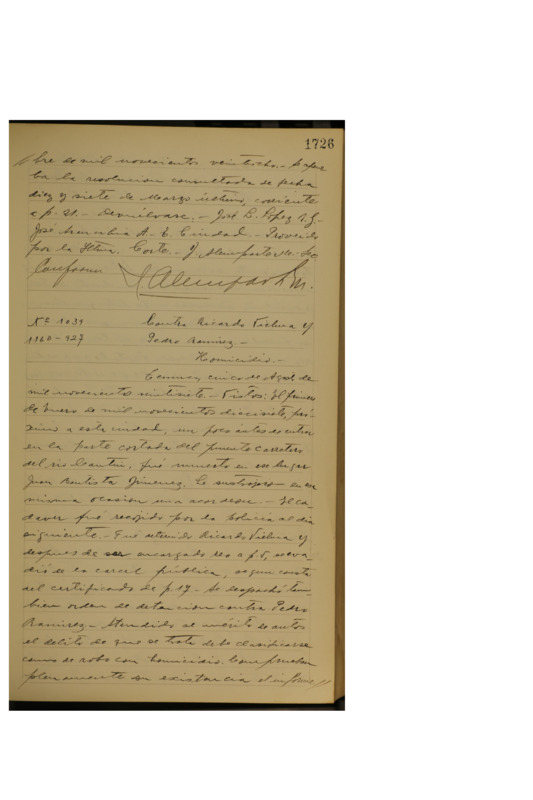 1726
bre de mil novecientos veintiocho.- Se aprue
ba la resolucion consultada de fecha
diez y siete de Marzo último, corriente
a p. 21.- Devuélvase.- José B. López S.G.-
José A.- E. Ciudad.- Proveido
por la Iltma. Corte.- J.
Conforme
Nº 1039
Contra Ricardo Vielma y
1160-927
Pedro Ramirez.-
Homicidio.-
Temuco, cinco de Agosto de
mil novecientos veintisiete.- Vistos: El primero
de Enero de mil novecientos diecisiete, pró
ximo a esta ciudad, un poco antes de entrar
en la parte cortada del puente carretero
del rio Cautin, fué muerto en ese lugar
Juan Bautista Jimenez. Se sustrajeron en esa
misma ocasion una acordeon.- El ca
daver fué recojido por la policia al dia
siguiente.- Fué detenido Ricardo Vielma y
despues de ser encargado reo a p. 5, se eva
dió de la carcel pública, segun consta
del certificado de p. 17.- Se despachó tam
bien orden de detencion contra Pedro
Ramirez.- Atendido el mérito de autos
el delito de que se trata debe clasificarse
como de robo con homicidio. Comprueban
plenamente su existencia el informe